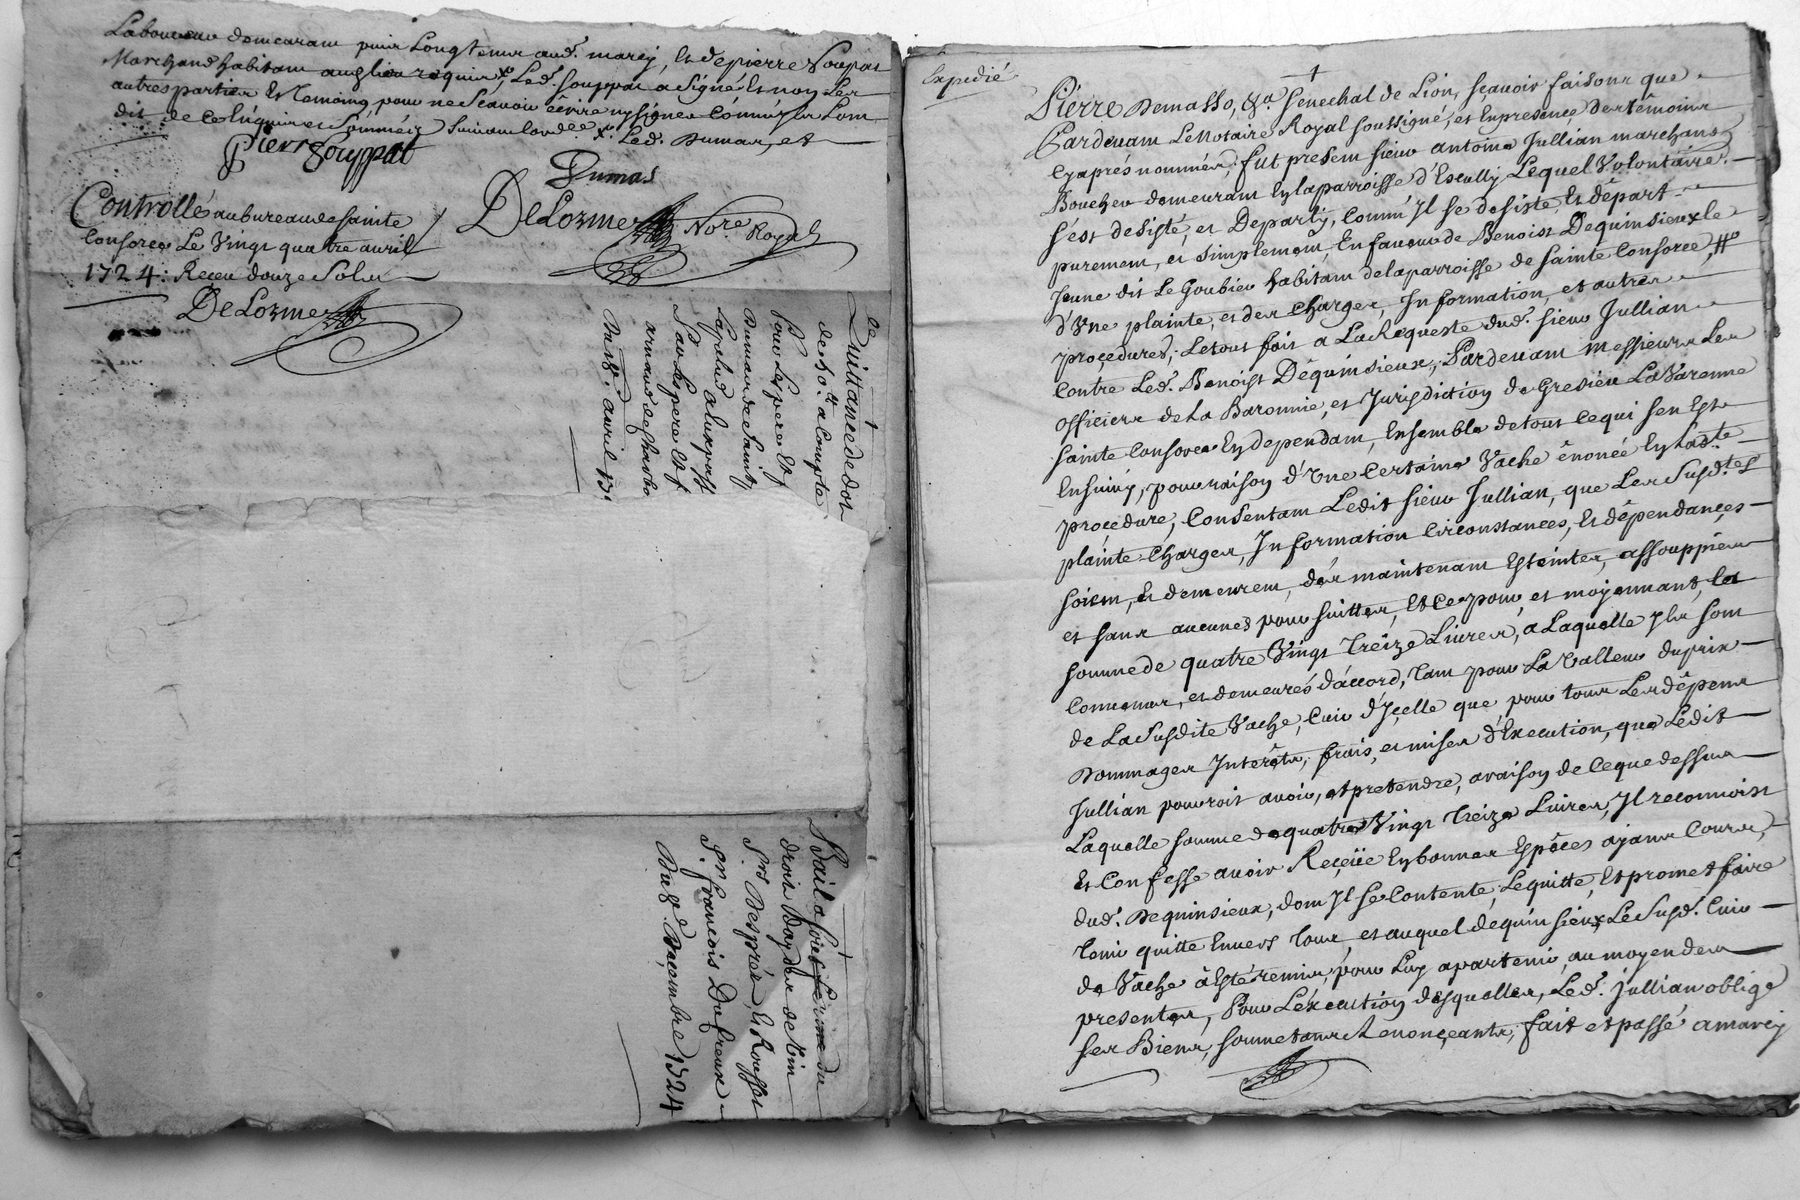 Laboureur demeurant puis Longtems aud. marcy, Et de pierre Souppat
Marchand habitant audlieu requis, Led. Souppat a signé Et non Les
autres parties Et temoins pour ne Scavoir écrire ny signer Comme ils L'ont
dit de ce Enquis et Sommés Suivant lord.ce Led. Dumas, et
Pierre Souppat
Dumas
Controllé au bureau de sainte
Consorce Le Vingt quatre avril
1724: Receu douze Sols
DeLorme
DeLorme No.re Royal
Quittance de dot
de 50.lt a Compte
Pour Le pere Et f
Dumas de Saint
Du 8. avril 17
Bail a Soiet ferme du
droit Bayder de Vin
S.rs Desprès Et Rousset
S.r francois Dufreux
Du 8.e Decembre 1724
Expedié
Pierre Demasso, &a Senechal de Lion, sçavoir faisons que
Pardevant Le Notaire Royal soussigné, et En presence des têmoins
Cy aprés nommés, fut present sieur antoine Jullian marchand
Boucher demeurant En la parroisse d'Escully Lequel Volontaire.
s'est desisté, et Departy, Comm' Il se desiste, Et départ
purement, et simplement, En faveur de Benoist Dequinsieux le
Jeune dit Le Goubier habitant de la parroisse de Sainte Consorce,
d'Vne plainte, et des Charges, Information, et autres
proçedures, Le tout fait a La Requeste dud. sieur Jullian
Contre Led. Benoist Dequinsieux, Pardevant Messieurs Les
officiers de La Baronnie, et Jurisdiction de Gresieu La Varenne
Sainte Consorce En dependant, Ensemble de tout Ce qui s'en Est
Ensuivy, pour raison d'Vne Certaine Vache énonée En Lad.te
proçedure, Consentant Ledit sieur Jullian, que Les Susd.tes
plainte Charges, Information Circonstances, Et dépendançes
soient, Et demeurent, dés maintenant Esteintes, assouppies
et sans aucunes poursuittes, Et Ce pour, et moyennant, La
somme de quatre Vingt Treize Livres, a Laquelle Ils sont
Convenus, et demeurés d'accord, Tant pour La Valleur du prix
de La Susdite Vache, Cuir d'Jçelle que pour tous Les dépens
Dommages Interêts, frais, et mises d'Execution, que Ledit
Jullian pouvroit avoir, et pretendre, a raison de Ceque dessus
Laquelle somme de quatre Vingt Treize Livres, Il reconnoist
Et Confesse avoir Reçeüe En bonnes Espêces ayant Cours,
dud. Dequinsieux, dont Il se Contente, Le quitte, Et promet faire
Tenir quitte Envers Tous, et auquel dequinsieux Le Susd. Cuir
de Vache à Esté remis, pour Luy apartenir, au moyen des
presentes, Pour L'éxecution desquelles, Led. Jullian oblige
ses Biens, soumetant Renonçeants, fait et passé a marcy